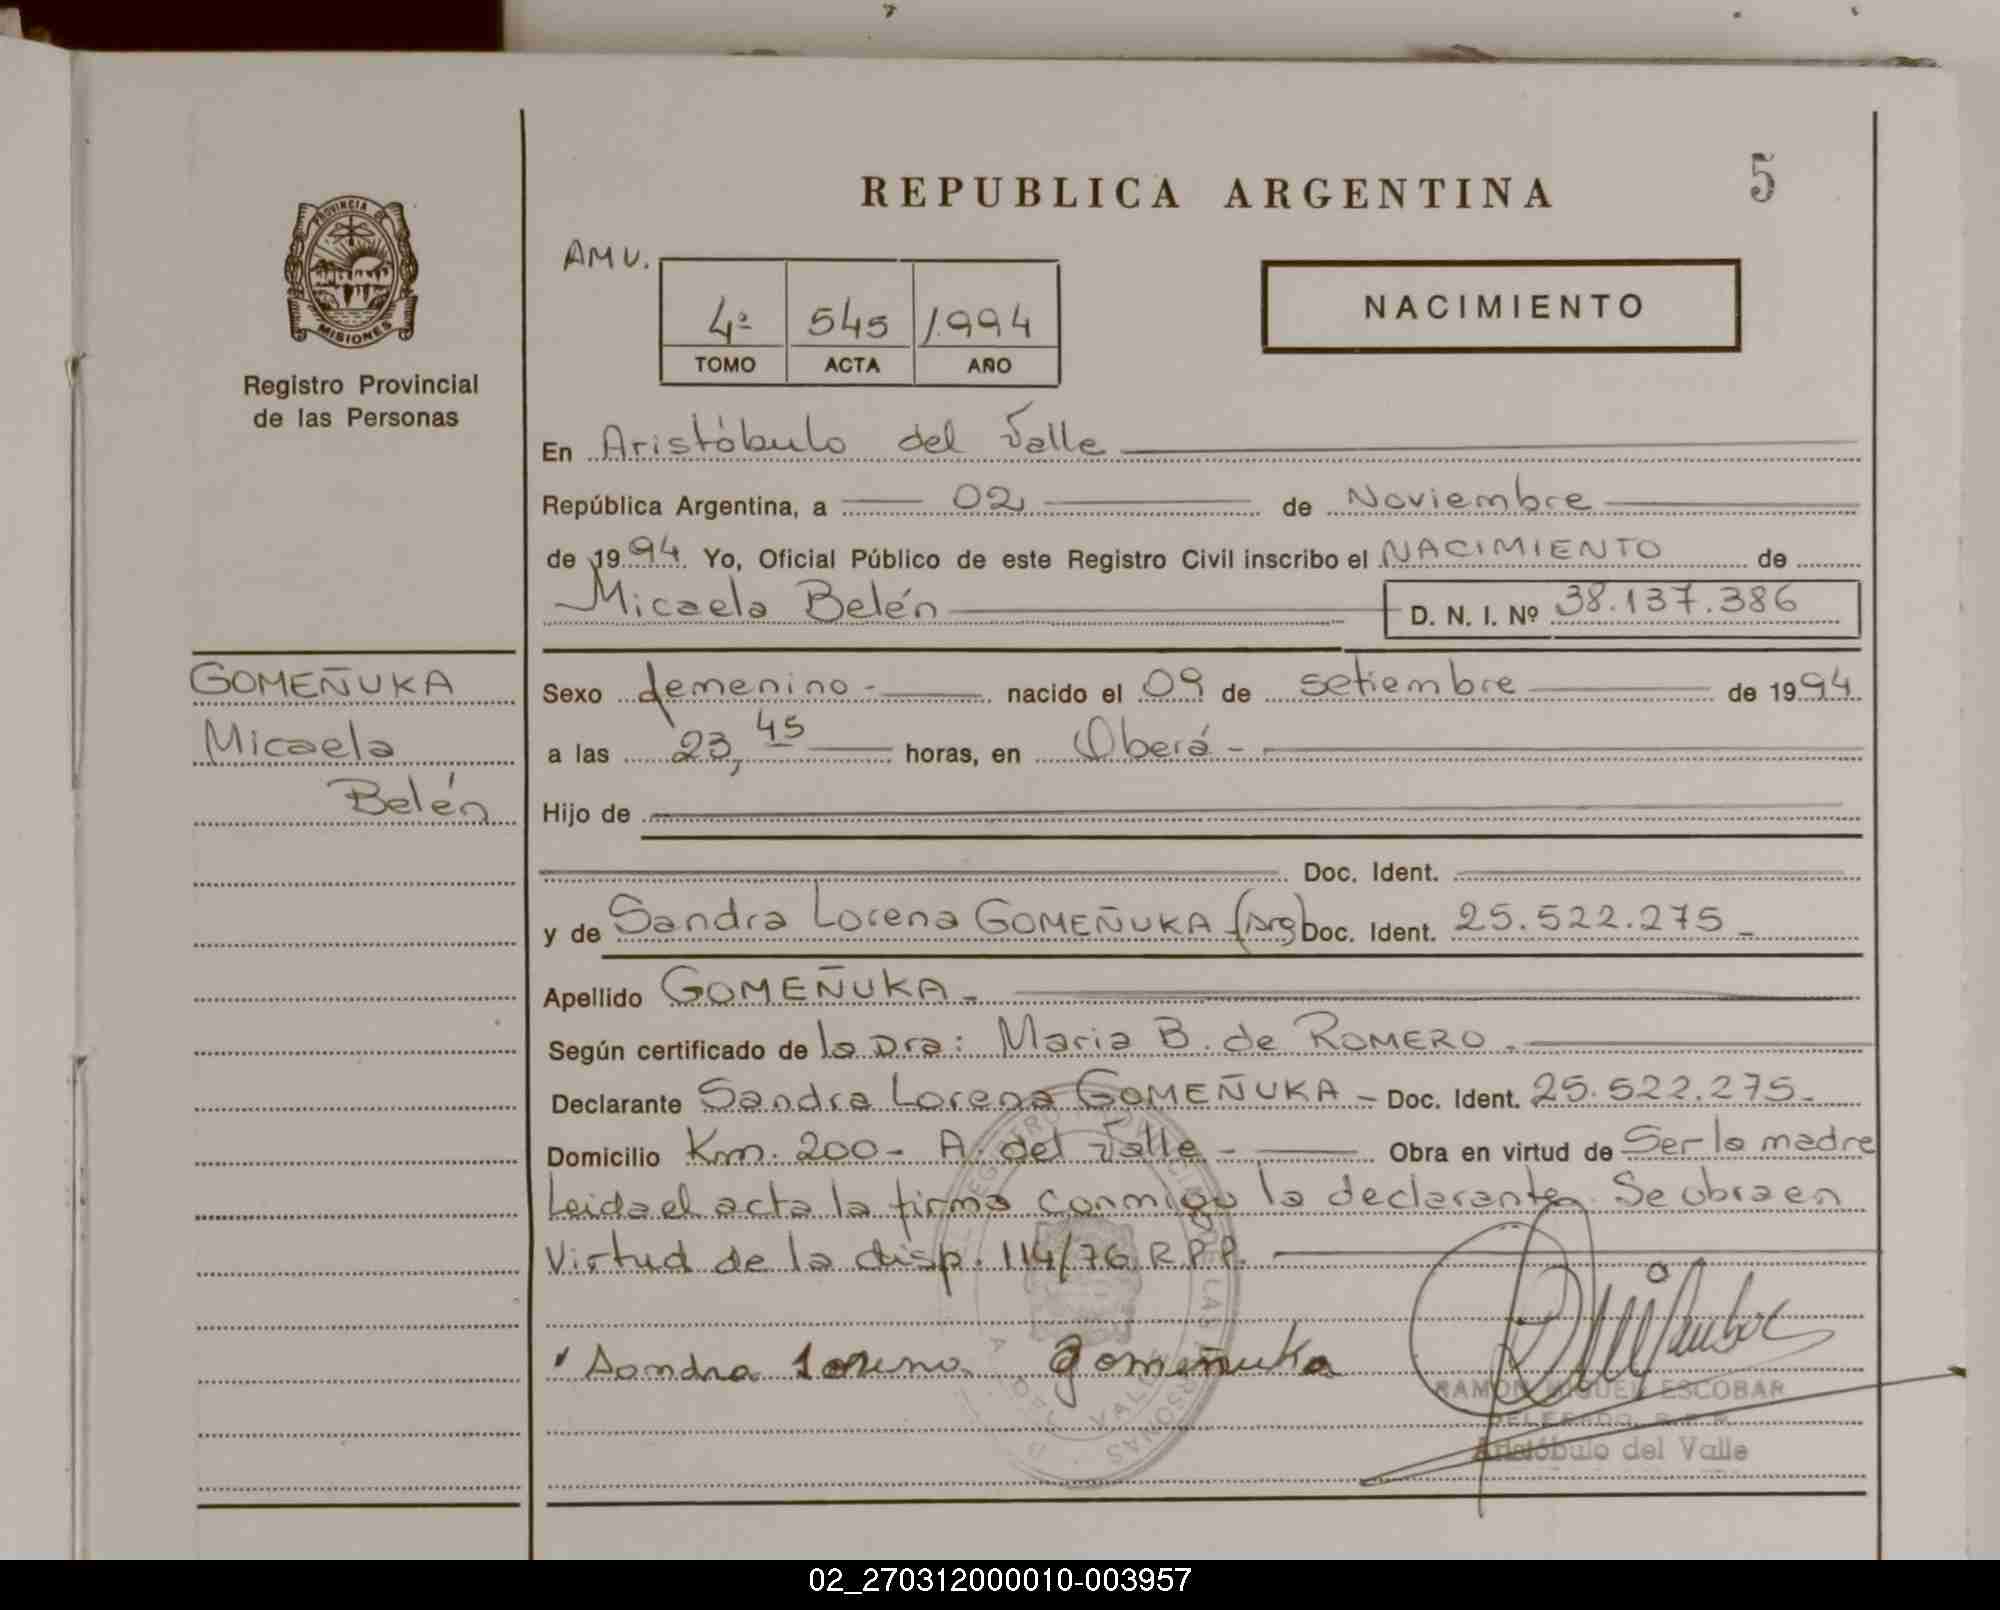 REPUBLICA ARGENTINA
5
PROVINCIA DE
MISIONES
Registro Provincial
de las Personas
AMU.
4º 545 1994
TOMO ACTA AÑO
NACIMIENTO
En Aristóbulo del Valle
República Argentina, a 02 de Noviembre
de 1994 Yo, Oficial Público de este Registro Civil inscribo el NACIMIENTO de
Micaela Belén D. N. I. Nº 38.137.386
GOMEÑUKA
Micaela
Belén
Sexo femenino - nacido el 09 de setiembre de 1994
a las 23,45 horas, en Oberá -
Hijo de
Doc. Ident.
y de Sandra Lorena GOMEÑUKA (Arg) Doc. Ident. 25.522.275 -
Apellido GOMEÑUKA -
Según certificado de la Dra: Maria B. de ROMERO -
Declarante Sandra Lorena GOMEÑUKA - Doc. Ident. 25.522.275 -
Domicilio Km. 200 - A. del Valle - Obra en virtud de Ser la madre
Leida el acta la firma conmigo la declarante. Se obra en
Virtud de la disp. 114/76 R.P.P.
Sandra Lorena Gomeñuka
RAMON MIGUEL ESCOBAR
DELEGADO R.P.P.
Aristóbulo del Valle
02_270312000010-003957